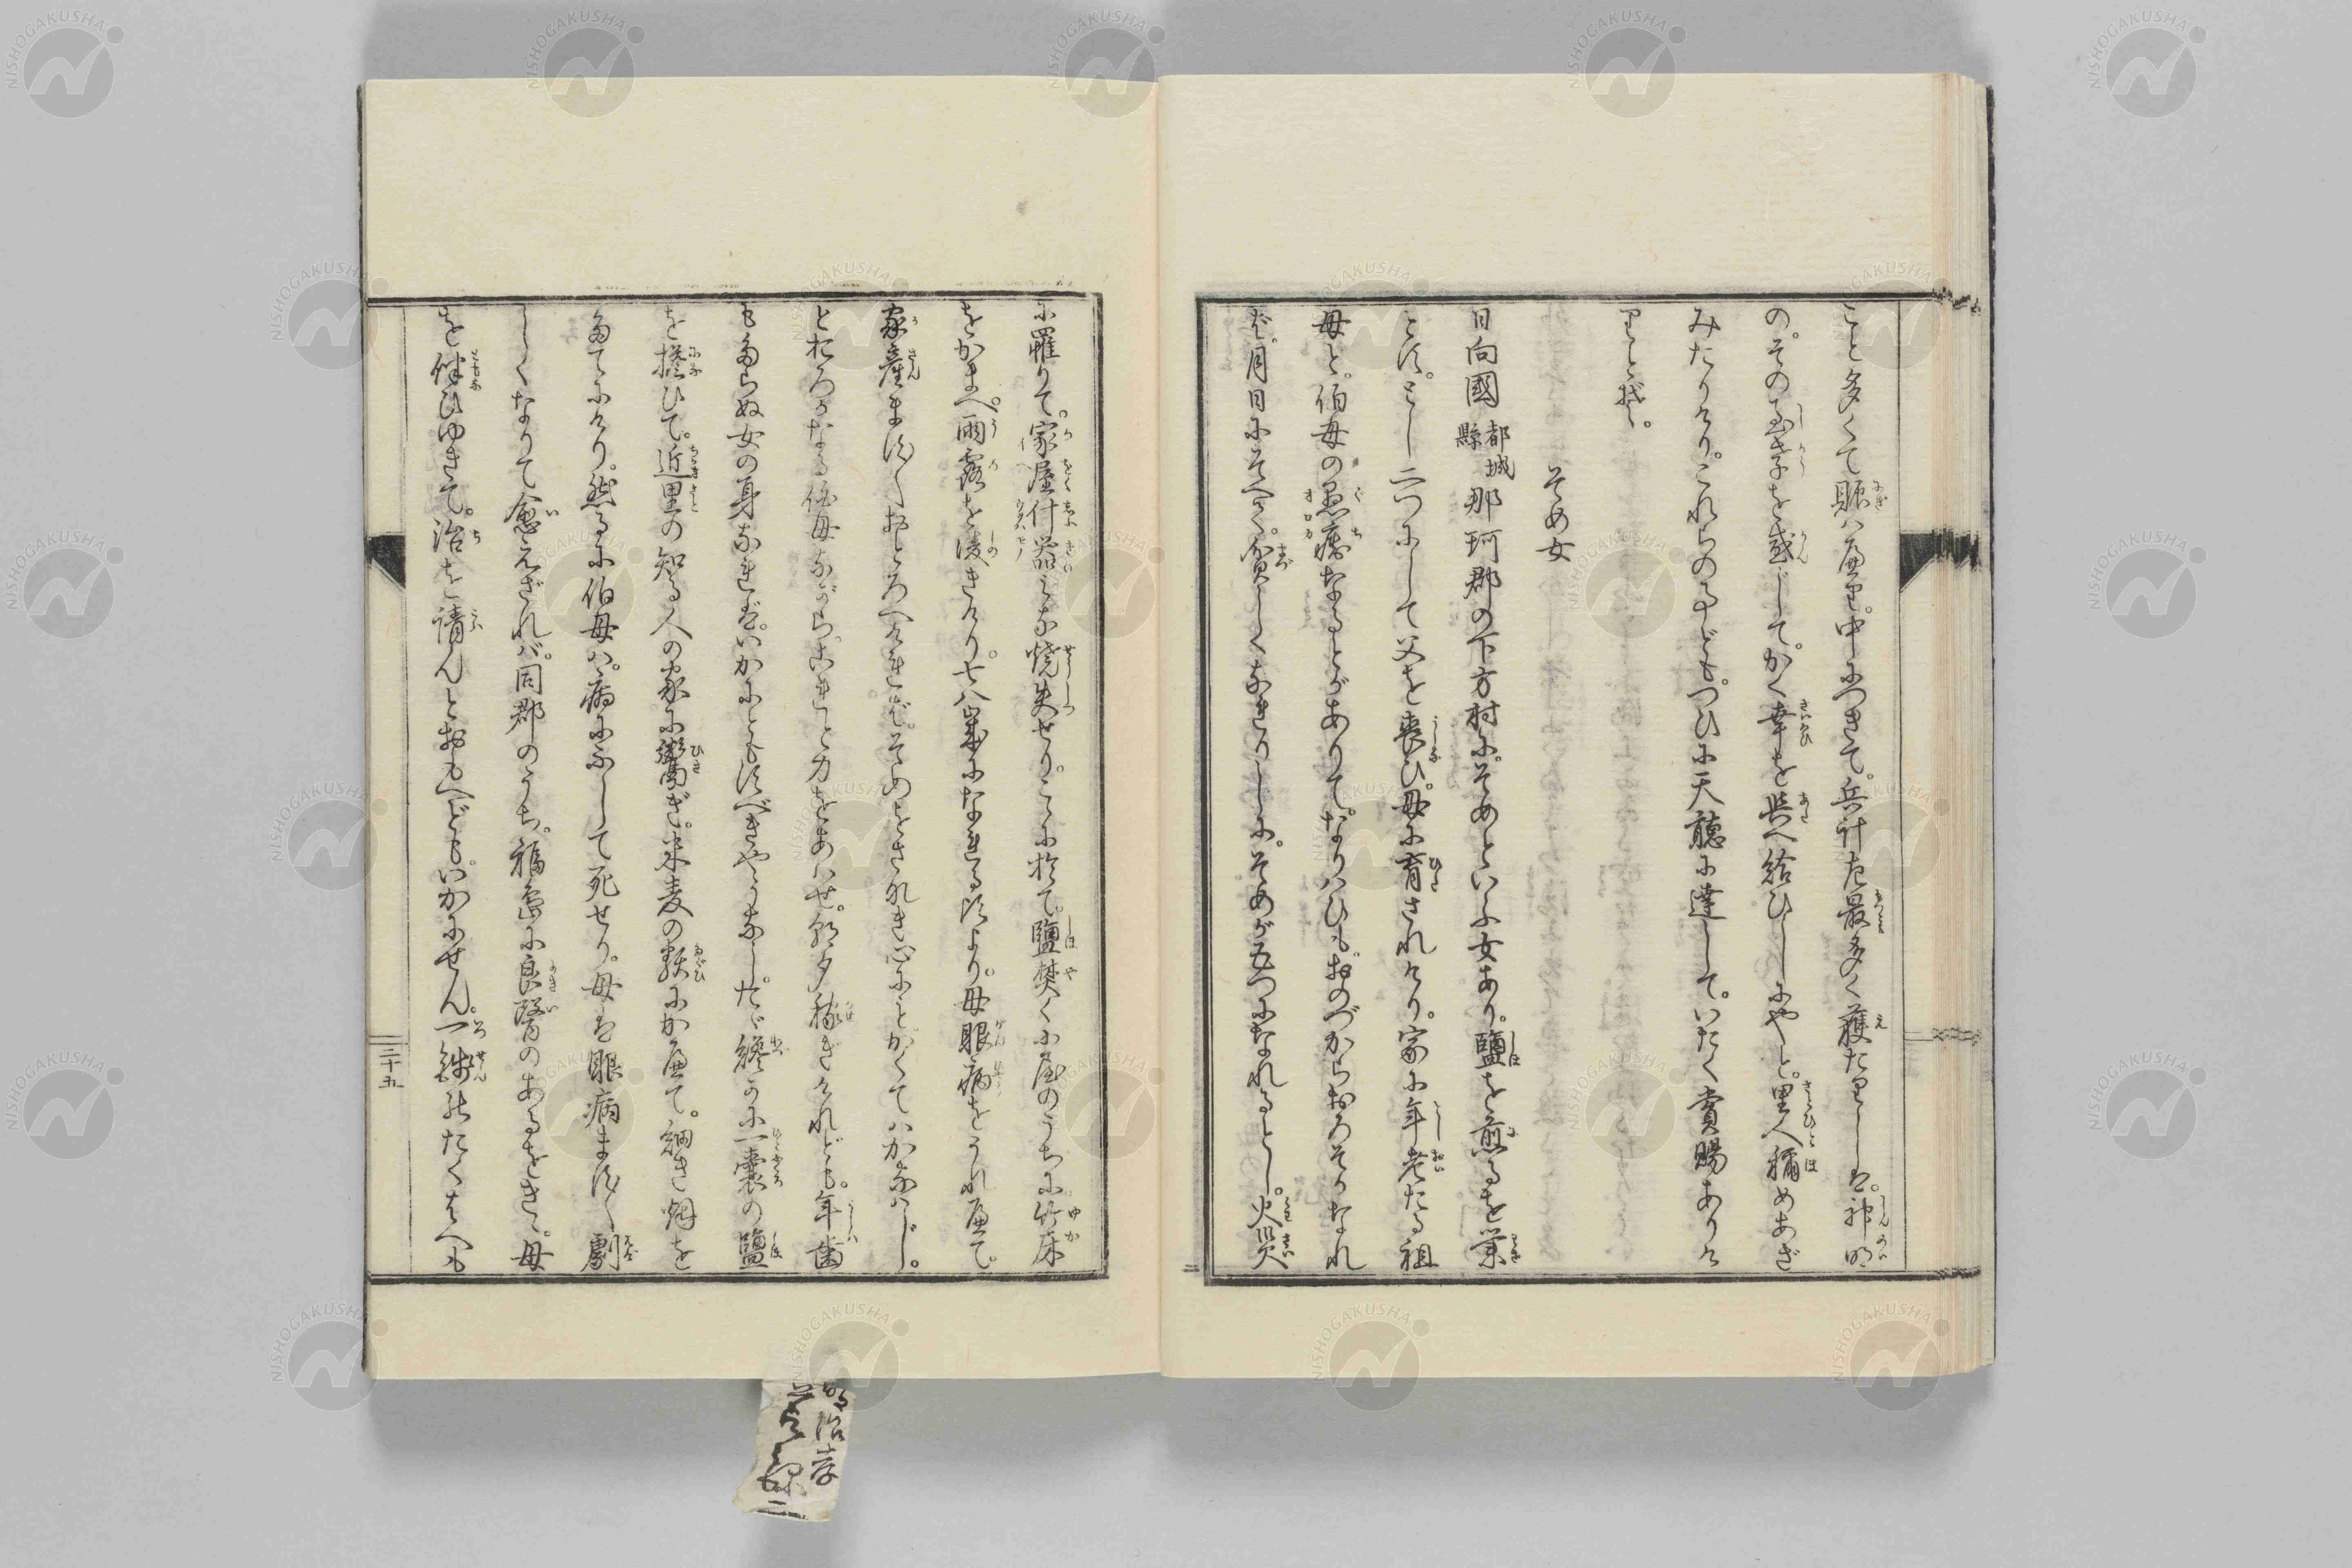 こと多くて賑ハへり。中につきて。兵計尤最多く獲たりしハ。神明
の。その孝を感じして。かく幸を與へ給ひしにやと。里人稱めあざ
みたりけり。これらの事ども。つひに天聴に達して。いたく賞賜ありけ
りとぞ。
そめ女
日向國 都城縣 那珂郡の下方村に。そめといふ女あり。鹽を煎るを業
とす。とし二つにして父を喪ひ。母に育されけり。家に年老たる祖
母と。伯母の愚癡なるとがありて。なりハひも。おのづからおろそかなれ
ば。月日にそへて。貧しくなりしに。そめが五つになれるとし。火災
に罹りて。家屋什器みな燒失せり。こゝに於て。鹽焚く小屋のうちに竹床
をかまへ。雨露を凌きけり。七八歳になれる頃より。母眼病をうれへて。
家産ます〱おとろへければ。そめをさなき心にとかくてハかなハじ。
とおろかなる伯母ながら。これと力をあハせ。朝夕稼ぎけれども。年歯
もたらぬ女の身なれば。いかにともすべきやうなし。たゞ纔かに一嚢の鹽
を擔ひて。近里の知る人の家に鬻ぎ。米麦の類にかへて。細き烟を
たてにけり。然るに伯母ハ。病にふして死せり。母も眼病ます〱劇
しくなりて愈えざれバ。同郡のうち。福島に良醫のあるをきゝ。母
を伴ひゆきて。治を請んとおもへども。いかにせん。一錢のたくはへも
三十五
明治孝
節録
二
NISHOGAKUSHA